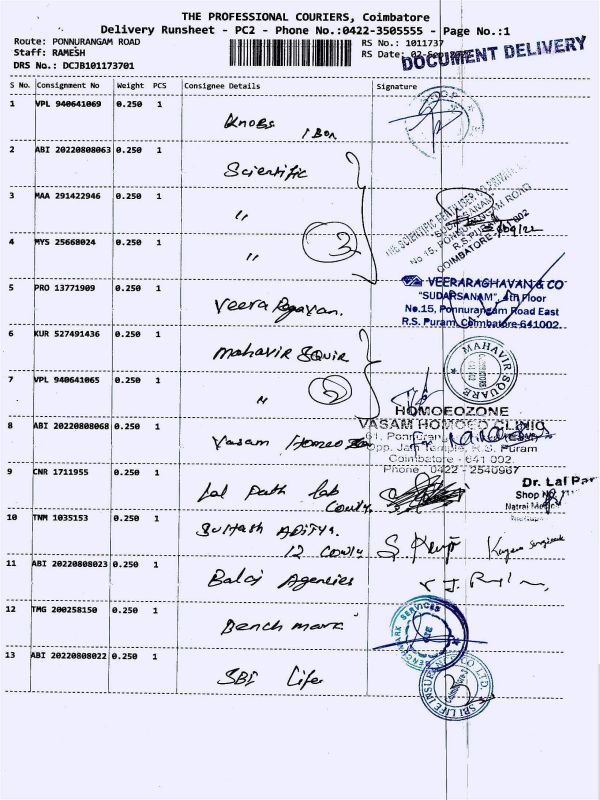 THE PROFESSIONAL COURIERS, Coimbatore
Delivery Runsheet - PC2 - Phone No.:0422-3505555 - Page No.:1
Route: PONNURANGAM ROAD
RS No.: 1011737
Staff: RAMESH
RS Date: 02-Sep
DOCUMENT DELIVERY
DRS No.: DCJB101173701
S No. Consignment No Weight PCS Consignee Details Signature
1 VPL 940641069 0.250 1 Knobs 1 Box
2 ABI 20220808063 0.250 1 Scientific
3 MAA 291422946 0.250 1 "
THE SCIENTIFIC FERTILISER CO PRIVATE
"SUDARSANAM"
No 15, PONNURANGAM ROAD
R.S.PURAM
COIMBATORE 002
4 MYS 25668024 0.250 1 "
3
5 PRO 13771909 0.250 1 Veera Ragavan.
VEERARAGHAVAN & CO
"SUDARSANAM", 4th Floor
No.15, Ponnurangam Road East
R.S. Puram, Coimbatore-641002.
6 KUR 527491436 0.250 1 Mahavir Squir
MAHAVIR SQUARE
7 VPL 940641065 0.250 1 "
8 ABI 20220808068 0.250 1 Vasam Homeo
HOMOEOZONE
VASAM HOMOEO CLINIC
61, Ponnurang
Opp. Jain Temple, R.S. Puram
Coimbatore - 641 002.
Phone : 0422 - 2540967
9 CNR 1711955 0.250 1 Lal Path Lab
Cowly
Dr. Lal Pa
Shop No.
Natraj
10 TNM 1035153 0.250 1 Aditya.
12 Cowly
11 ABI 20220808023 0.250 1 Balaj Agencies
12 TMG 200258150 0.250 1 Bench mark
BENCHMARK SERVICES
13 ABI 20220808022 0.250 1 SBI Life
SBI LIFE INSURANCE CO LTD.